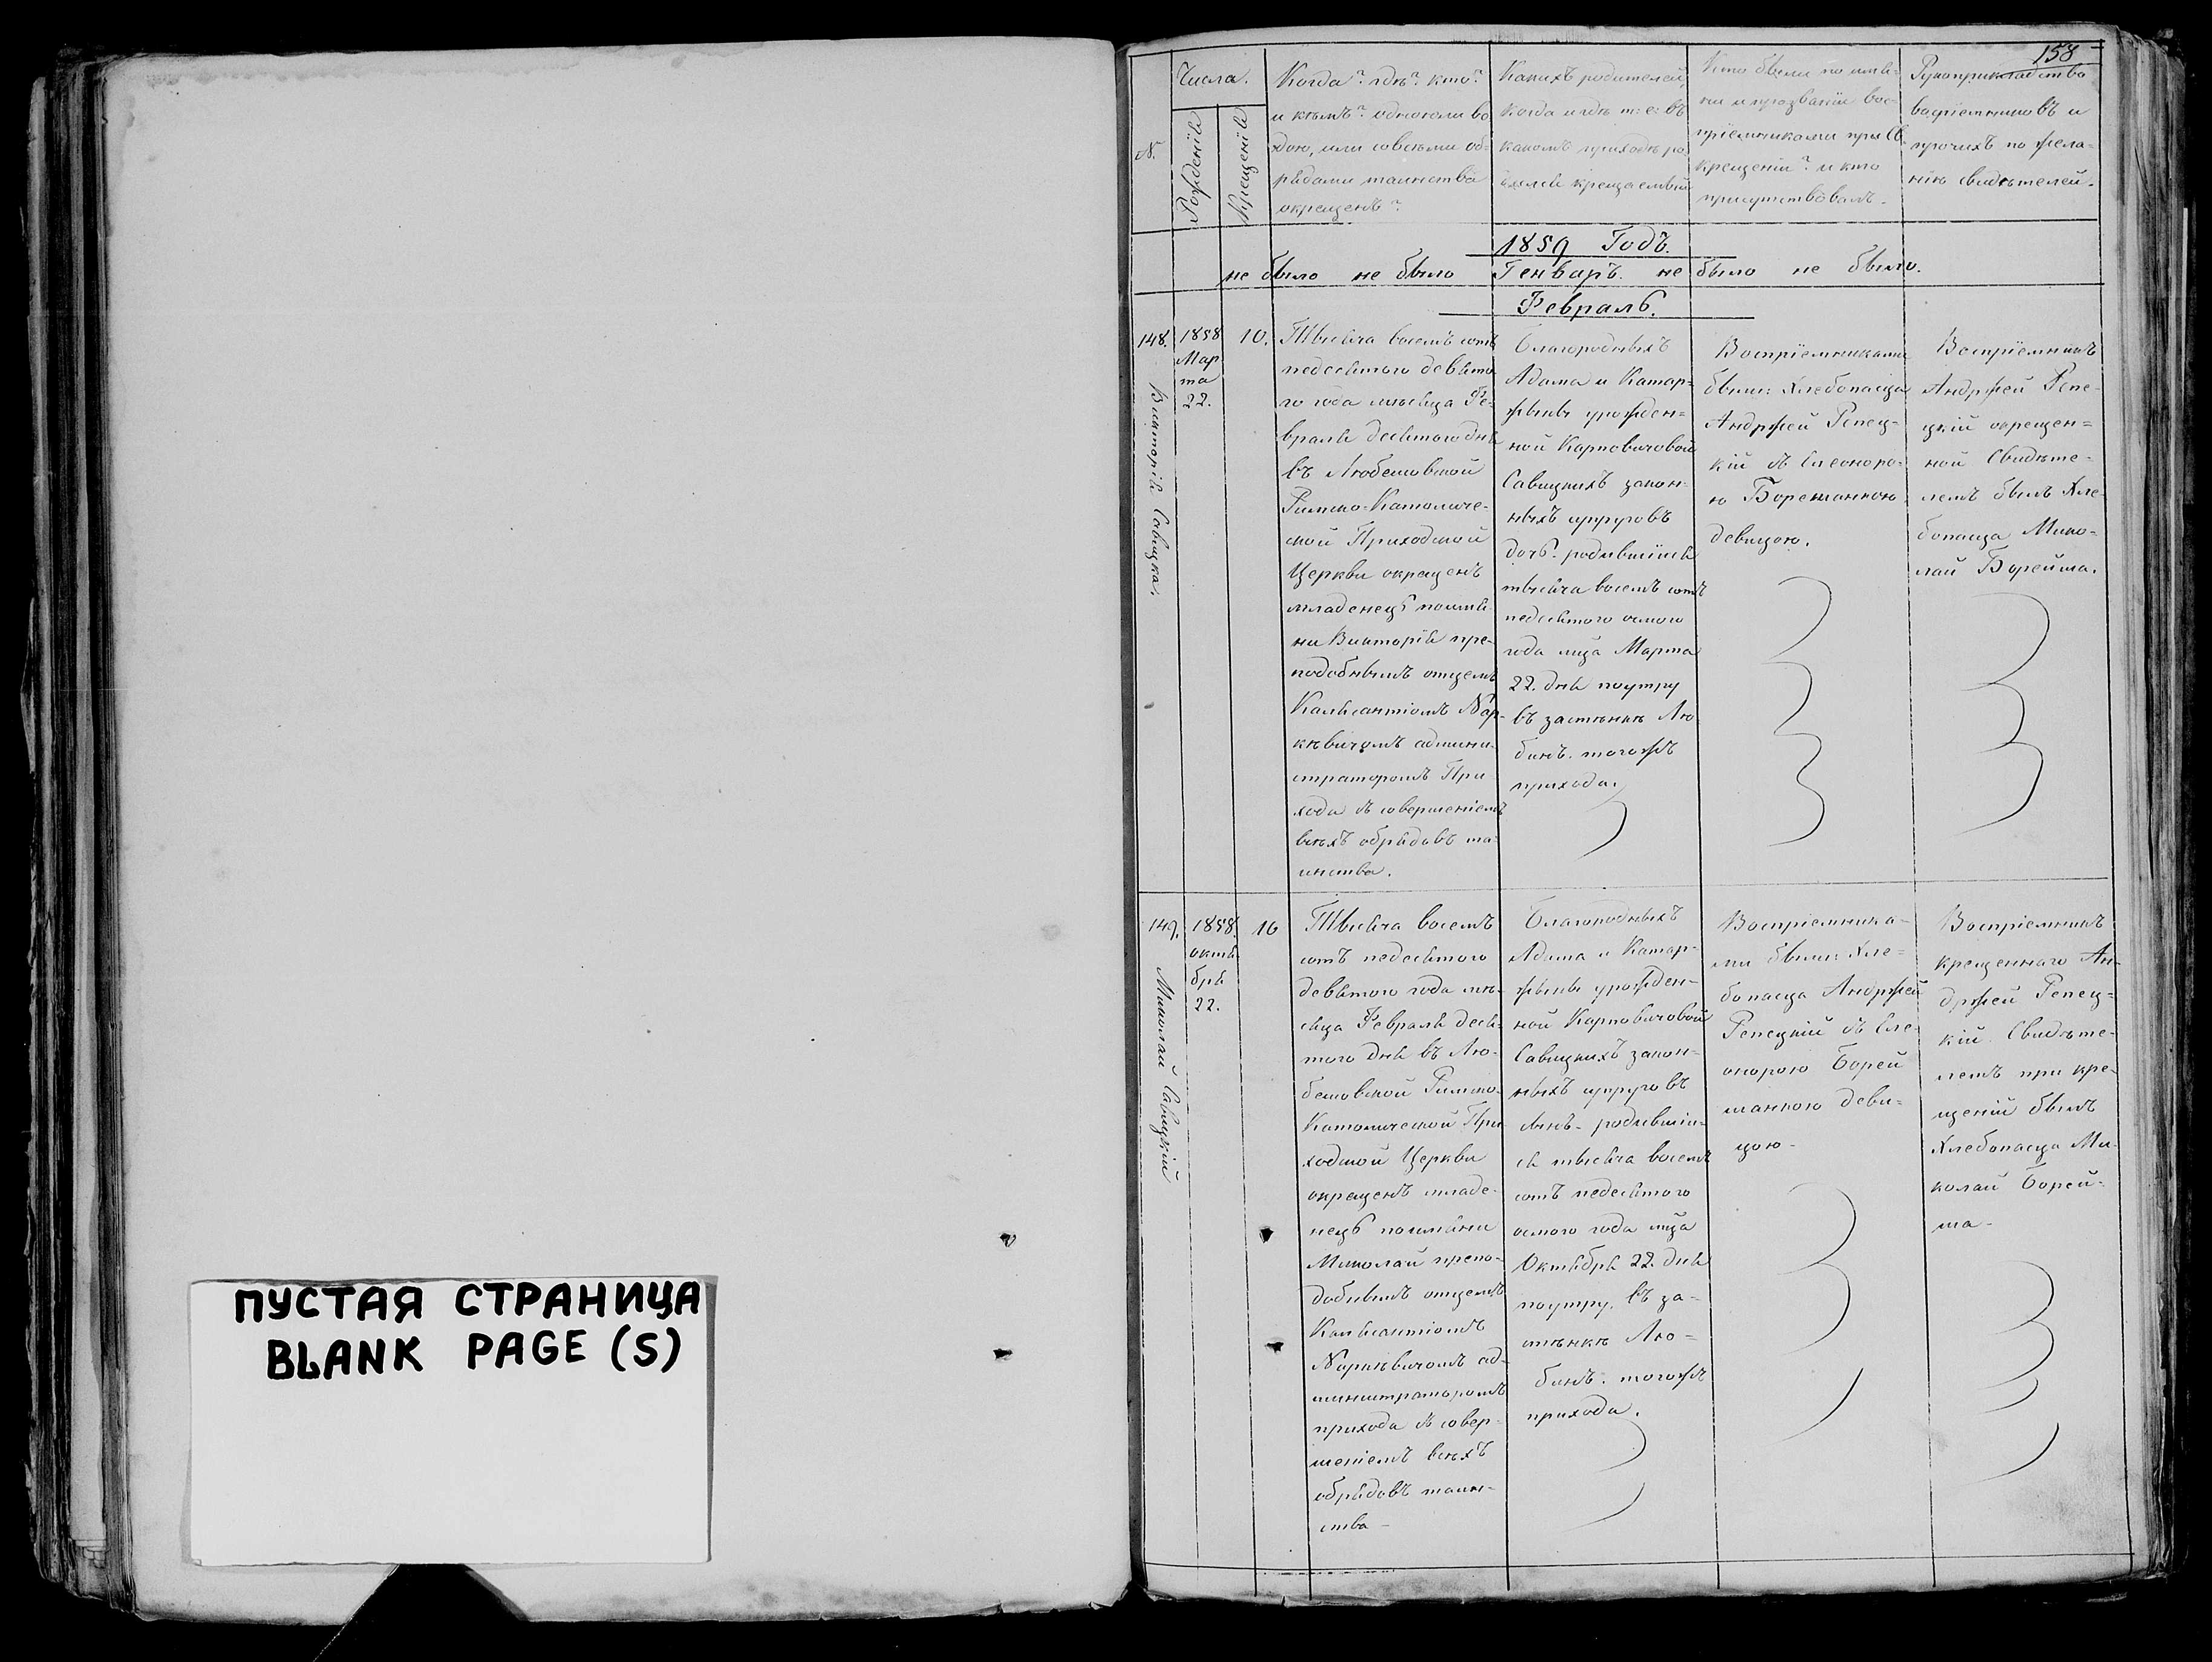 ПУСТАЯ СТРАНИЦА
BLANK PAGE (S)
158
№.
Числа.
Рожденія
Крещенія
Когда? гдѣ? кто?
и кѣмъ? одноюли во
дою, или совсѣми об-
рядами таинства
окрещенъ?
Какихъ родителей,
когда и гдѣ т: е: въ
какомъ приходѣ ро
дился крещаемый
Кто были по име-
ни и прозванію вос-
пріемниками при Св.
крещеніи? и кто
присутствовалъ.
Рукоприкладства
воспріемниковъ и
прочихъ по жела-
нію свидѣтелей.
1859 Годъ.
не было не было Генварь. не было не было.
Февраль.
148.
Викторія Савицка.
1858
Мар
та
22.
10.
Тысяча восемъ сотъ
педесятого девято
го года мѣсяца Фе-
враля десятого дня
въ Любешовской
Римско-Католиче-
ской Приходской
Церкви окрещенъ
младенецъ поимя-
ни Викторія пре-
подобнымъ отцемъ
администраторомъ При
хода съ совершеніемъ
всѣхъ обрядовъ та-
инства.
Благородныхъ
Адама и Катар-
жыны урожден=
ной Карповичовой
Савицкихъ закон-
ныхъ супруговъ
дочь. родившійся
тысяча восемъ сотъ
педесятого осмого
года мца Марта
22. дня поутру
въ застѣнкѣ Лю
бинъ. тогожъ
прихода.
Воспріемниками
были: хлебопасца
Анджей Репец-
кій съ Елеоноро-
ю Борейшанкою
девицою.
Воспріемникъ
Анджей Репе-
цкій окрещен=
ной Свидѣте-
лемъ былъ Хле
бопасца Мико-
лай Борейша.
149.
Миколай Савицкій
1858.
октя
бря
22.
10
Тысяча восемъ
сотъ педесятого
девятого года мѣ-
сяца Февраля деся-
того дня въ Лю-
бешовской Римско-
Католической При
ходской Церкви
окрещенъ младе-
нецъ поимяни
Миколай препо-
добнымъ отцемъ
ад-
министраторомъ
прихода съ совер-
шеніемъ всѣхъ
обрядовъ таин-
ства -
Благородныхъ
Адама и Катар-
жыны урожден-
ной Карповичовой
Савицкихъ закон-
ныхъ супруговъ
сынъ- родившій-
ся тысяча восемъ
сотъ педесятого
осмого года мца
Октября 22. дня
поутру. въ за-
стѣнкѣ Лю-
бинъ. тогожъ
прихода.
Воспріемника-
ми были: Хле=
бопасца Анджей
Репецкій съ Еле-
онорою Борей
шанкою деви=
цою-
Воспріемникъ
крещеннаго Ан-
джей Репец=
кій. Свидѣте-
лемъ при кре-
щеніи былъ
Хлебопасца Ми-
колай Борей-
ша-